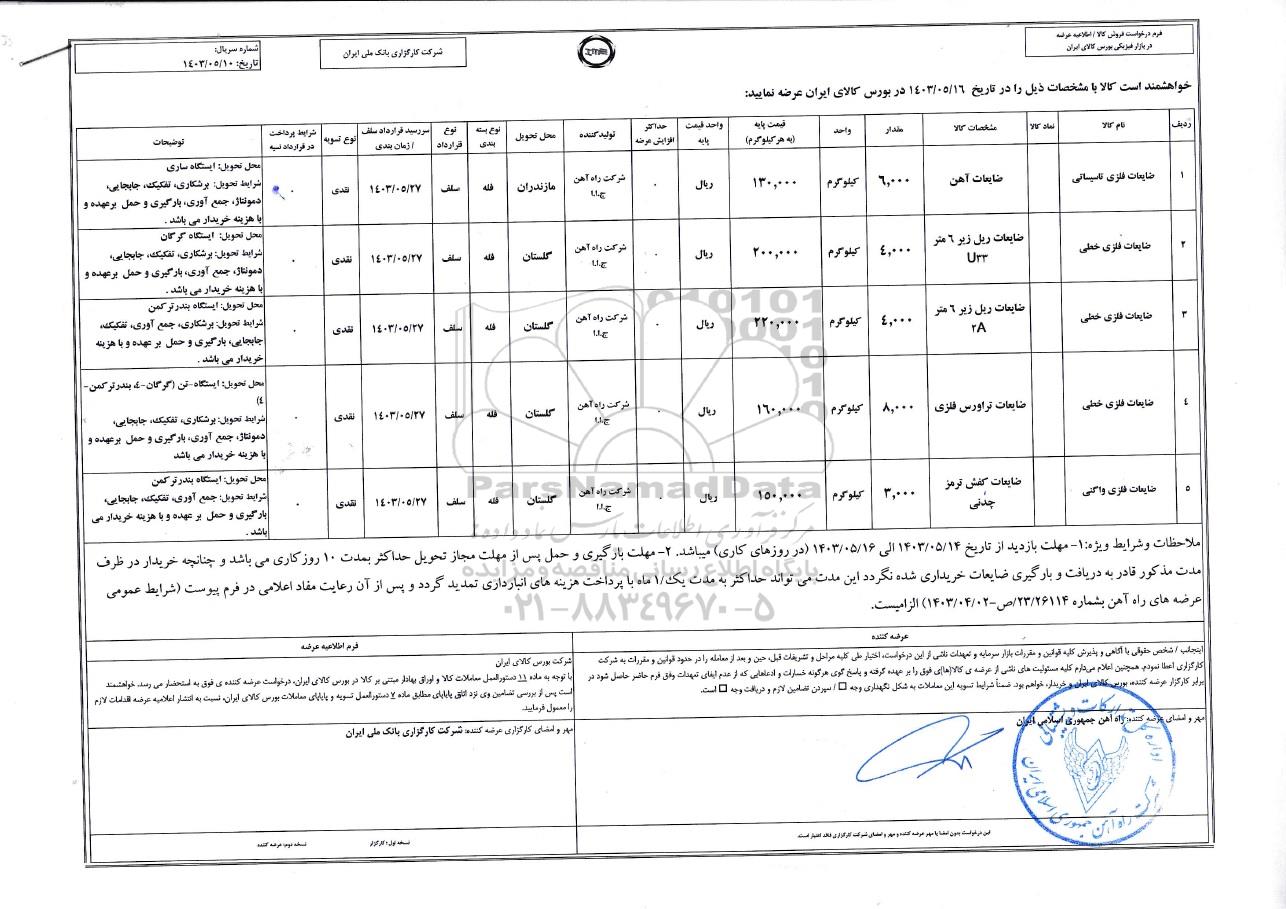 فرم درخواست فروش کالا / اطلاعیه عرضه
در بازار فیزیکی بورس کالای ایران
شرکت کارگزاری بانک ملی ایران
شماره سریال:
تاریخ: ۱٤۰۳/۰٥/۱۰
خواهشمند است کالا با مشخصات ذیل را در تاریخ ۱٤۰۳/۰٥/۱٦ در بورس کالای ایران عرضه نمایید:
ردیف | نام کالا | نماد کالا | مشخصات کالا | مقدار | واحد | قیمت پایه (به هر کیلوگرم) | واحد قیمت پایه | حداکثر افزایش عرضه | تولیدکننده | محل تحویل | نوع بسته بندی | نوع قرارداد | سررسید قرارداد سلف / زمان بندی | نوع تسویه | شرایط پرداخت در قرارداد نسیه | توضیحات
۱ | ضایعات فلزی تاسیساتی | ضایعات آهن | ٦,۰۰۰ | کیلوگرم | ۱۳۰,۰۰۰ | ریال | ۰ | شرکت راه آهن ج.ا.ا | مازندران | فله | سلف | ۱٤۰۳/۰٥/۲۷ | نقدی | ۰
محل تحویل: ایستگاه ساری
شرایط تحویل: برشکاری، تفکیک، جابجایی،
دمونتاژ، جمع آوری، بارگیری و حمل برعهده و
با هزینه خریدار می باشد .
۲ | ضایعات فلزی خطی | ضایعات ریل زیر ٦ متر U۳۳ | ٤,۰۰۰ | کیلوگرم | ۲۰۰,۰۰۰ | ریال | ۰ | شرکت راه آهن ج.ا.ا | گلستان | فله | سلف | ۱٤۰۳/۰٥/۲۷ | نقدی | ۰
محل تحویل: ایستگاه گرگان
شرایط تحویل: برشکاری، تفکیک، جابجایی،
دمونتاژ، جمع آوری، بارگیری و حمل برعهده و
با هزینه خریدار می باشد .
۳ | ضایعات فلزی خطی | ضایعات ریل زیر ٦ متر ۲A | ٤,۰۰۰ | کیلوگرم | ۲۲۰,۰۰۰ | ریال | ۰ | شرکت راه آهن ج.ا.ا | گلستان | فله | سلف | ۱٤۰۳/۰٥/۲۷ | نقدی | ۰
محل تحویل: ایستگاه بندرترکمن
شرایط تحویل: برشکاری، جمع آوری، تفکیک،
جابجایی، بارگیری و حمل بر عهده و با هزینه
خریدار می باشد .
٤ | ضایعات فلزی خطی | ضایعات تراورس فلزی | ۸,۰۰۰ | کیلوگرم | ۱٦۰,۰۰۰ | ریال | ۰ | شرکت راه آهن ج.ا.ا | گلستان | فله | سلف | ۱٤۰۳/۰٥/۲۷ | نقدی | ۰
محل تحویل: ایستگاه-تن (گرگان-٤، بندرترکمن-
٤)
شرایط تحویل: برشکاری، تفکیک، جابجایی،
دمونتاژ، جمع آوری، بارگیری و حمل برعهده و
با هزینه خریدار می باشد
٥ | ضایعات فلزی واگنی | ضایعات کفش ترمز چدنی | ۳,۰۰۰ | کیلوگرم | ۱٥۰,۰۰۰ | ریال | ۰ | شرکت راه آهن ج.ا.ا | گلستان | فله | سلف | ۱٤۰۳/۰٥/۲۷ | نقدی | ۰
محل تحویل: ایستگاه بندرترکمن
شرایط تحویل: جمع آوری، تفکیک، جابجایی،
بارگیری و حمل بر عهده و با هزینه خریدار می
باشد .
ParsNamadData
پایگاه اطلاع رسانی مناقصه و مزایده
۰۲۱-۸۸۳۴۹۶۷۰-۵
ملاحظات وشرایط ویژه:۱- مهلت بازدید از تاریخ ۱٤۰۳/۰٥/۱٤ الی ۱٤۰۳/۰٥/۱٦ (در روزهای کاری) میباشد. ۲- مهلت بارگیری و حمل پس از مهلت مجاز تحویل حداکثر بمدت ۱۰ روز کاری می باشد و چنانچه خریدار در ظرف
مدت مذکور قادر به دریافت و بارگیری ضایعات خریداری شده نگردد این مدت می تواند حداکثر به مدت یک/۱ ماه با پرداخت هزینه های انبارداری تمدید گردد و پس از آن رعایت مفاد اعلامی در فرم پیوست (شرایط عمومی
عرضه های راه آهن بشماره ۲۳/۲٦۱۱٤/ص-۱٤۰۳/۰٤/۰۲) الزامیست.
عرضه کننده
اینجانب / شخص حقوقی با آگاهی و پذیرش کلیه قوانین و مقررات بازار سرمایه و تعهدات ناشی از این درخواست، اختیار طی کلیه مراحل و تشریفات قبل، حین و بعد از معامله را در حدود قوانین و مقررات به شرکت
کارگزاری اعطا نمودم. همچنین اعلام می‌دارم کلیه مسئولیت های ناشی از عرضه ی کالا(ها)ی فوق را بر عهده گرفته و پاسخ گوی هرگونه خسارات و ادعاهایی که از عدم ایفای تعهدات وفق فرم حاضر حاصل شود در
برابر کارگزار عرضه کننده، بورس کالای ایران و خریدار، خواهم بود. ضمناً شرایط تسویه این معاملات به شکل نگهداری وجه □ / سپردن تضامین لازم و دریافت وجه □ است.
مهر و امضای عرضه کننده: راه آهن جمهوری اسلامی ایران
این درخواست بدون امضا یا مهر عرضه کننده و مهر و امضای شرکت کارگزاری فاقد اعتبار است.
فرم اطلاعیه عرضه
شرکت بورس کالای ایران
با توجه به ماده ۱۱ دستورالعمل معاملات کالا و اوراق بهادار مبتنی بر کالا در بورس کالای ایران، درخواست عرضه کننده ی فوق به استحضار می رسد. خواهشمند
است پس از بررسی تضامین وی نزد اتاق پایاپای مطابق ماده ۷ دستورالعمل تسویه و پایاپای معاملات بورس کالای ایران، نسبت به انتشار اعلامیه عرضه اقدامات لازم
را معمول فرمایید.
مهر و امضای کارگزاری عرضه کننده: شرکت کارگزاری بانک ملی ایران
نسخه اول: کارگزار
نسخه دوم: عرضه کننده